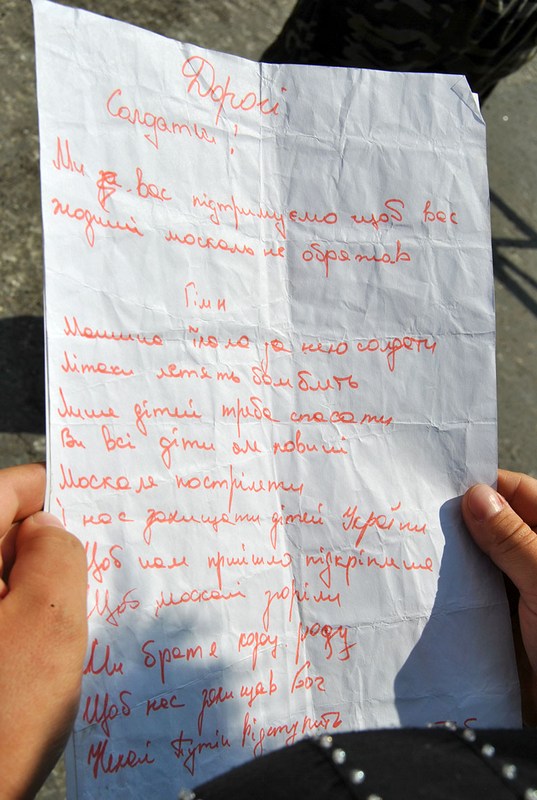 Дорогі
Солдати!
Ми за вас підтримуємо щоб вас
жодний москаль не ображав
Гімн
Машина їхала за нею солдати
Літаки летять бомблять
Лише дітей треба спасати
Ви всі діти
Москале постріляти
І нас захищати дітей України
Щоб нам прийшло підкріплине
Щоб москалі згоріли
Ми брате роду
Щоб нас захищав Бог
Нехай Путін відступить